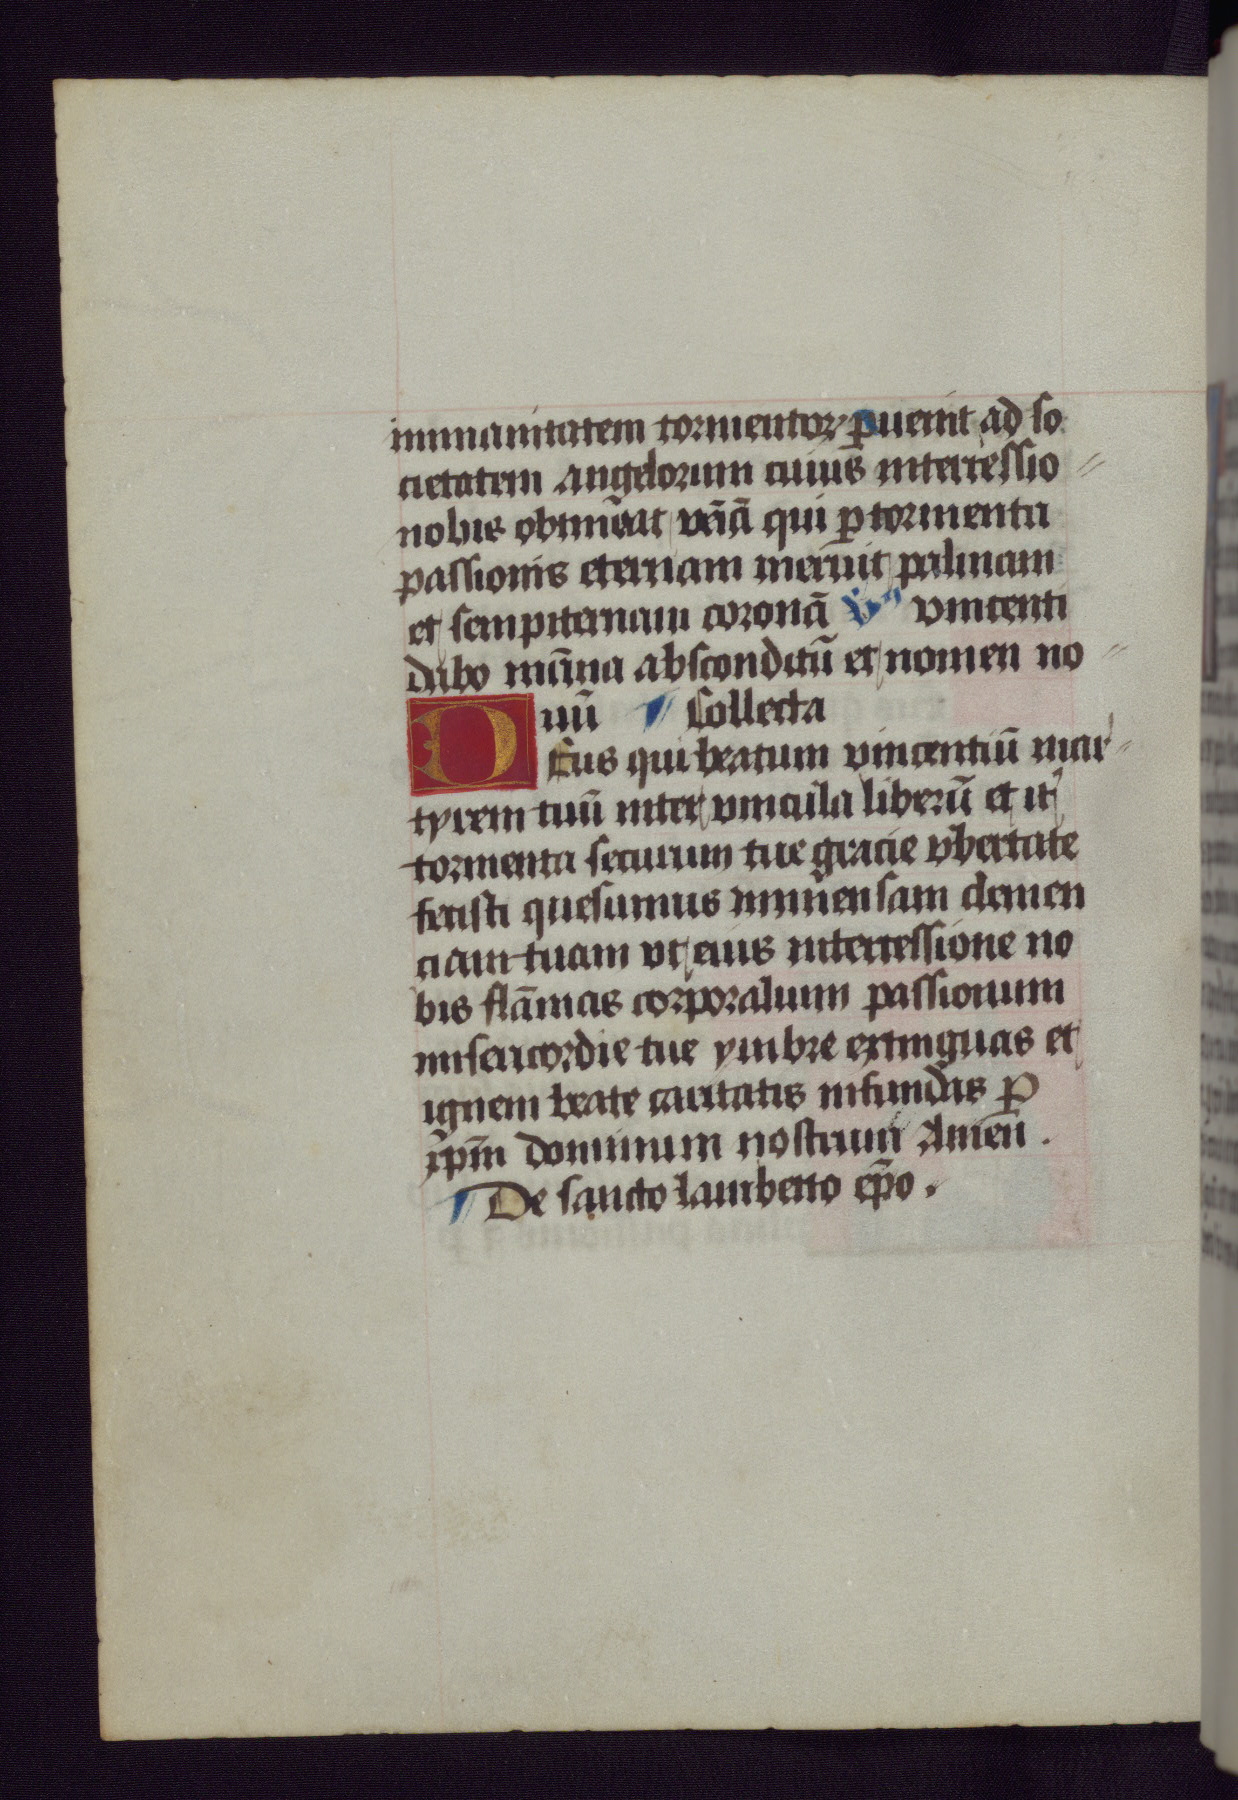 inmanitatem tormentoꝝ ꝑuenit ad so
cietatem angelorum cuius intercessio
nobis obtineat veniā qui ꝑ tormenta
passionis eternam meruit palmam
et sempiternam coronā vincenti
dabo mānna absconditū et nomen no
uū Collecta
Deus qui beatum vincentiū mar
tyrem tuū inter vincula liberū et ītͬ
tormenta securum tue gracie vbertate
fecisti quesumus immensam clemen
ciam tuam vt eius intercessione no
bis flāmas corporalium passionum
misericordie tue ymbre extinguas et
ignem beate caritatis infundas ꝑ
xp̄m dominum nostrum Amen̄ .
De sancto lamberto ep̄o .